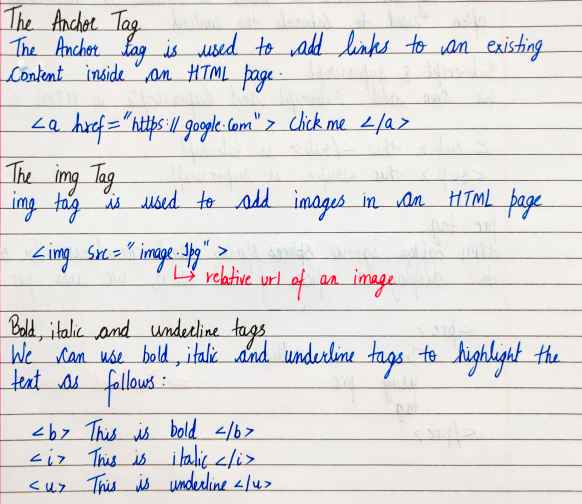 The Anchor Tag
The Anchor tag is used to add links to an existing
content inside an HTML page.
<a href="https://google.com"> Click me </a>
The img Tag
img tag is used to add images in an HTML page
<img src="image.Jpg">
↳ relative url of an image
Bold, italic and underline tags
We can use bold, italic and underline tags to highlight the
text as follows:
<b> This is bold </b>
<i> This is italic </i>
<u> This is underline </u>